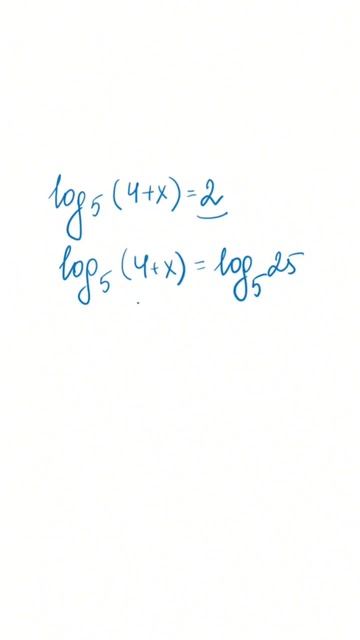 log₅(4+x)=2
log₅(4+x)=log₅25